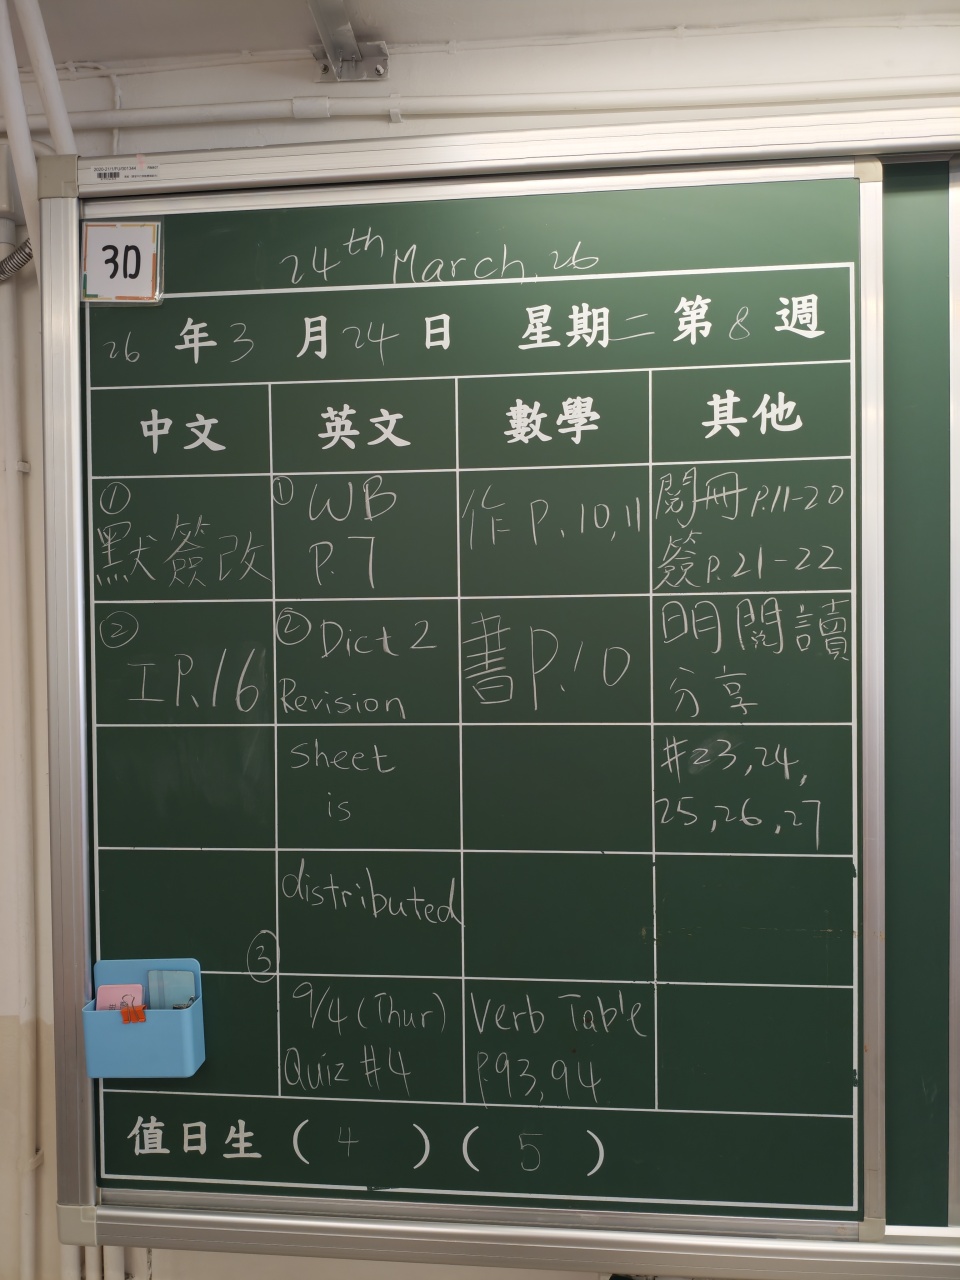 3D
24th March. 26
26 年 3 月 24 日 星期二 第 8 週
中文 英文 數學 其他
① 默簽改
① WB P.7
作 P.10,11
閱冊 P.11-20
簽 P.21-22
② 工 P.16
② Dict 2
Revision
sheet
is
distributed
書 P.10
明閱讀
分享
#23,24,
25,26,27
③ 9/4 (Thur)
Quiz #4
Verb Table
P.93,94
值日生 ( 4 ) ( 5 )